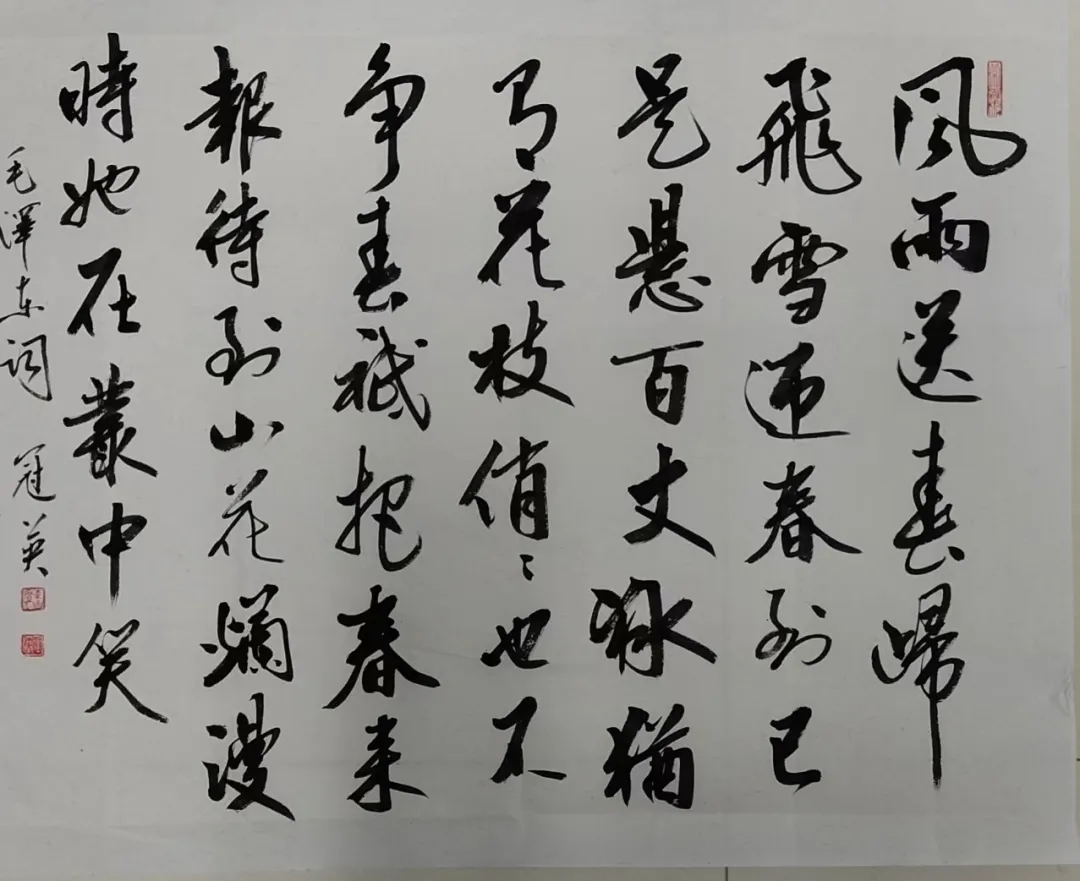 風雨送春歸
飛雪迎春到已
是懸百丈冰猶
有花枝俏ミ也不
争春祇把春来
報待到山花爛漫
時她在叢中笑
毛澤东词 冠英